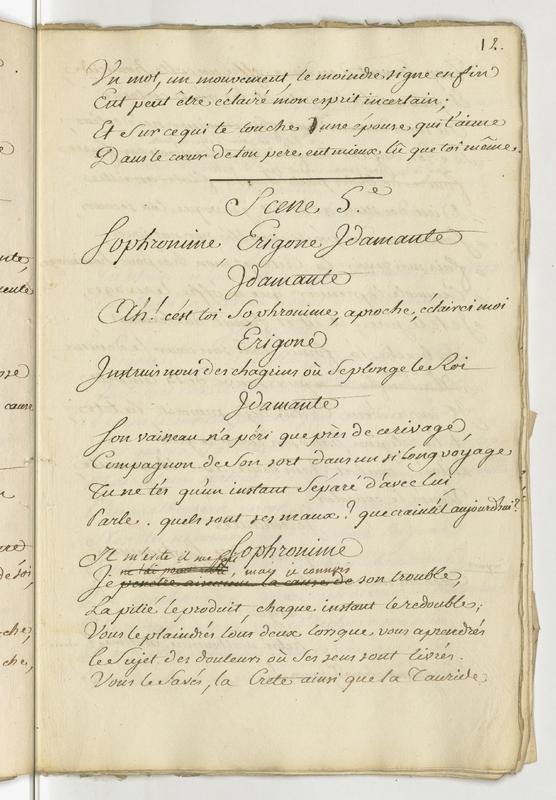 12.
Un mot, un mouvement, le moindre signe enfin
Eut peut être éclairé mon esprit incertain;
Et sur ce qui te touche, une épouse qui t'aime
Dans le cœur de ton pere eut mieux lû que toi même.
Scene 5.e
Sophronime, Erigone, Idamante
Idamante
Ah! c'est toi Sophronime, aproche, éclairci moi
Erigone
Instruis nous des chagrins où se plonge le Roi
Idamante
Son vaisseau n'a péri que près de ce rivage,
Compagnon de son sort dans un si long voyage
Tu ne t'és qu'un instant séparé d'avec lui
Parle. quels sont ses maux? que craint il aujourd'hui?
Sophronime
Il m'evite il me fuit, mais je connois
Je penetre aisement la cause de son trouble,
La pitié le produit, chaque instant le redouble;
Vous le plaindrés tous deux lorsque vous aprendrés
le Sujet des douleurs où ses sens sont livrés.
Vous le savés, la Crete ainsi que la Tauride